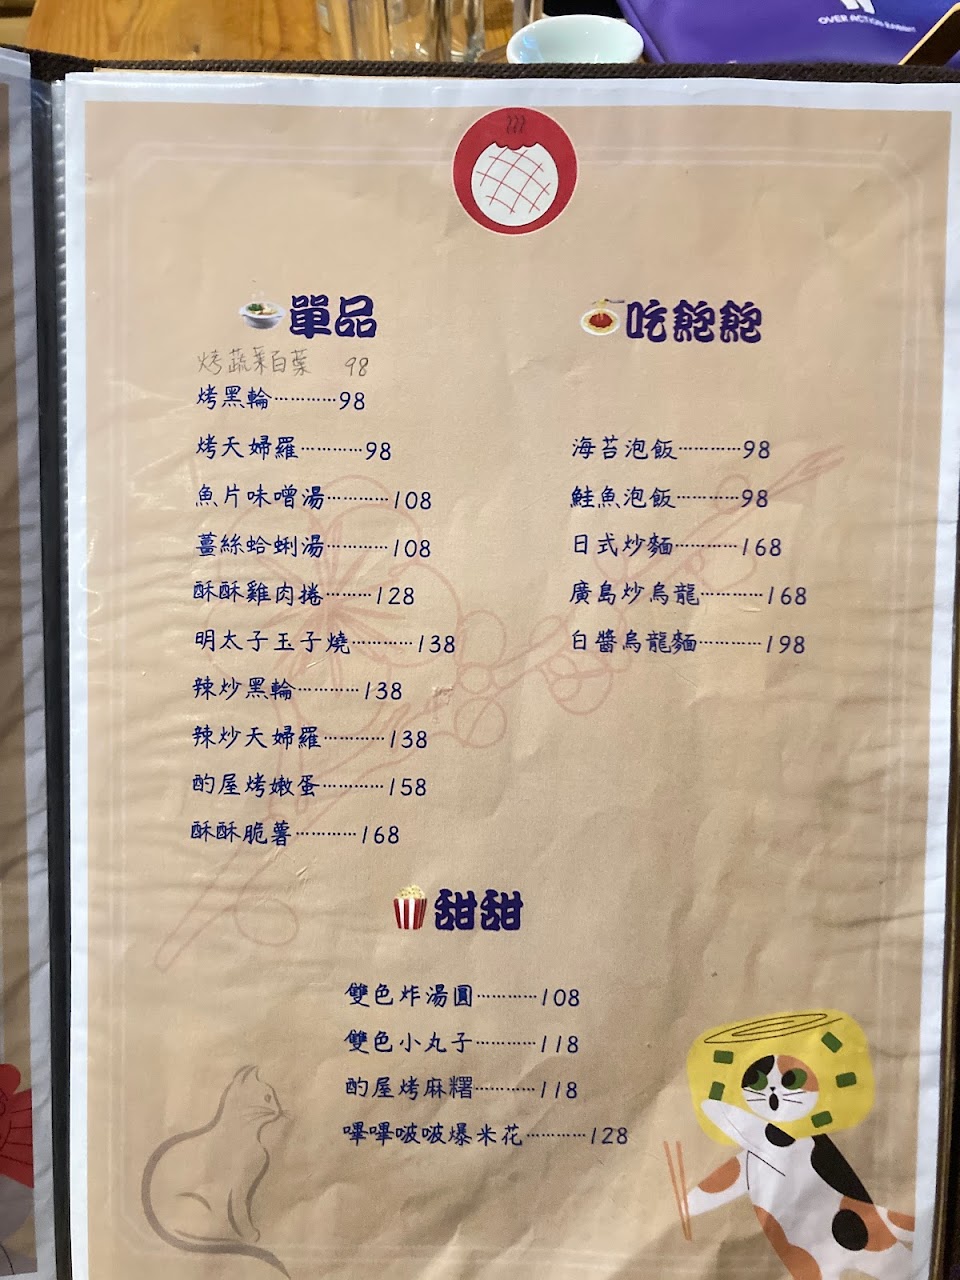 OVER ACTION RABBIT
單品
烤蔬菜百葉 98
烤黑輪…………98
烤天婦羅…………98
魚片味噌湯…………108
薑絲蛤蜊湯…………108
酥酥雞肉捲………128
明太子玉子燒…………138
辣炒黑輪…………138
辣炒天婦羅…………138
酌屋烤嫩蛋…………158
酥酥脆薯…………168
吃飽飽
海苔泡飯…………98
鮭魚泡飯…………98
日式炒麵…………168
廣島炒烏龍…………168
白醬烏龍麵…………198
甜甜
雙色炸湯圓…………108
雙色小丸子…………118
酌屋烤麻糬…………118
嗶嗶啵啵爆米花…………128